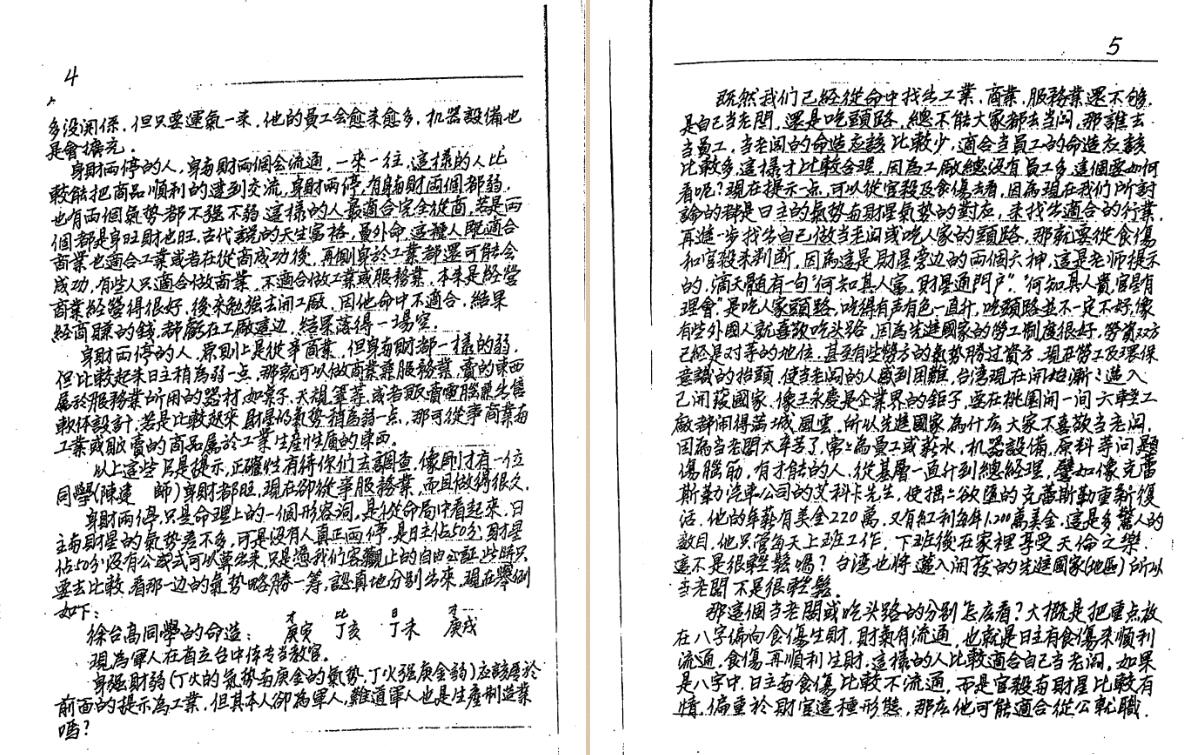 4
多没関係，但只要運氣一来，他的員工会愈来愈多，机器設備也
是會擴充。
身財両停的人，身與財両個会流通，一來一往，這樣的人比
較能把商品順利的達到交流，身財両停，有身與財両個都弱，
也有両個氣势都不强不弱，這樣的人最適合完全從商，若是両
個都是身旺財也旺，古代説的天生富格，員外命，這種人既適合
商業也適合工業或者在從商成功後，再側身於工業都還可能会
成功，有些人只適合做商業，不適合做工業或服務業，本来是經營
商業經營得很好，後来勉强去開工廠，因他命中不適合，結果
經商賺的錢，都虧在工廠這边，結果落得一場空。
身財両停的人，原則上是從事商業，但身與財都一樣的弱，
但比較起来日主稍為弱一点，那就可以做商業兼服務業，賣的東西
屬於服務業所用的器材，如菓子、天福軍等，或者販賣電腦兼售
軟体設計，若是比較起來財星的氣势稍為弱一点，那可從事商業與
工業或販賣的商品屬於工業生産性質的東西。
以上這些只是提示，正確性有待你们去調查，像剛才有一位
同學(陳建 師)身財都旺，現在卻從事服務業，而且做得很久。
身財両停，只是命理上的一個形容詞，是從命局中看起来，日
主與財星的氣势差不多，可是没有人真正両停，是日主佔50分，財星
佔50分，没有公式可以算出来，只是憑我们客觀上的自由心証，此時只
要去比較，看那一边的氣势略勝一籌，認真地分別出來，現在舉例
如下：
才 比 日 才
徐台高同學的命造： 庚寅 丁亥 丁未 庚戌
現為軍人在省立台中体专当教官。
身强財弱(丁火的氣势與庚金的氣势，丁火强庚金弱)应該屬於
前面的提示為工業，但其本人卻為軍人，難道軍人也是生産制造業
嗎？
5
既然我们已經從命中找出工業，商業，服務業還不够，
是自己当老闆，還是吃頭路，總不能大家都去当闆，那誰去
当員工，当老闆的命造应該比較少，適合当員工的命造应該
比較多，這樣才比較合理，因為工廠總没有員工多，這個要如何
看呢？現在提示一点，可以從官殺及食傷去看，因為現在我们所討
論的都是日主的氣势與財星氣势的對应，来找出適合的行業，
再進一步找出自己做当老闆或吃人家的頭路，那就要從食傷
和官殺来判断，因為這是財星旁边的両個大神，這是老师提示
的，滴天髓有一句"何知其人富，財星通門户"，"何知其人貴，官星有
理會"是吃人家頭路，吃得有声有色一直升，吃頭路並不一定不好，像
有些外國人就喜歡吃头路，因為先進國家的勞工制度很好，勞資双方
已經是对等的地位，甚至有些勞方的氣势勝过資方，現在勞工及環保
意識的抬頭，使当老闆的人感到困難，台湾現在開始漸漸邁入
已開發國家，像王永慶是企業界的鉅子，要在桃園開一間六輕工
廠都鬧得満城風雲，所以先進國家為什么大家不喜歡当老闆，
因為当老闆太辛苦了，常常為員工或薪水，机器設備，原料等问題
傷腦筋，有才能的人，從基層一直升到總經理，譬如像克萊
斯勒汽車公司的艾科卡先生，使摇摇欲墜的克萊斯勒重新復
活，他的年薪有美金220萬，又有紅利每年1,200萬美金，這是多驚人的
数目，他只管每天上班工作，下班後在家裡享受天倫之樂，
這不是很輕鬆嗎？台湾也將邁入開發的先進國家(地區)所以
当老闆不是很輕鬆。
那這個当老闆或吃头路的分别怎麽看？大概是把重点放
在八字偏向食傷生財，財氣有流通，也就是日主有食傷来順利
流通，食傷再順利生財，這樣的人比較適合自己当老闆，如果
是八字中，日主與食傷比較不流通，而是官殺與財星比較有
情，偏重於財官這種形態，那么他可能適合從公就職，